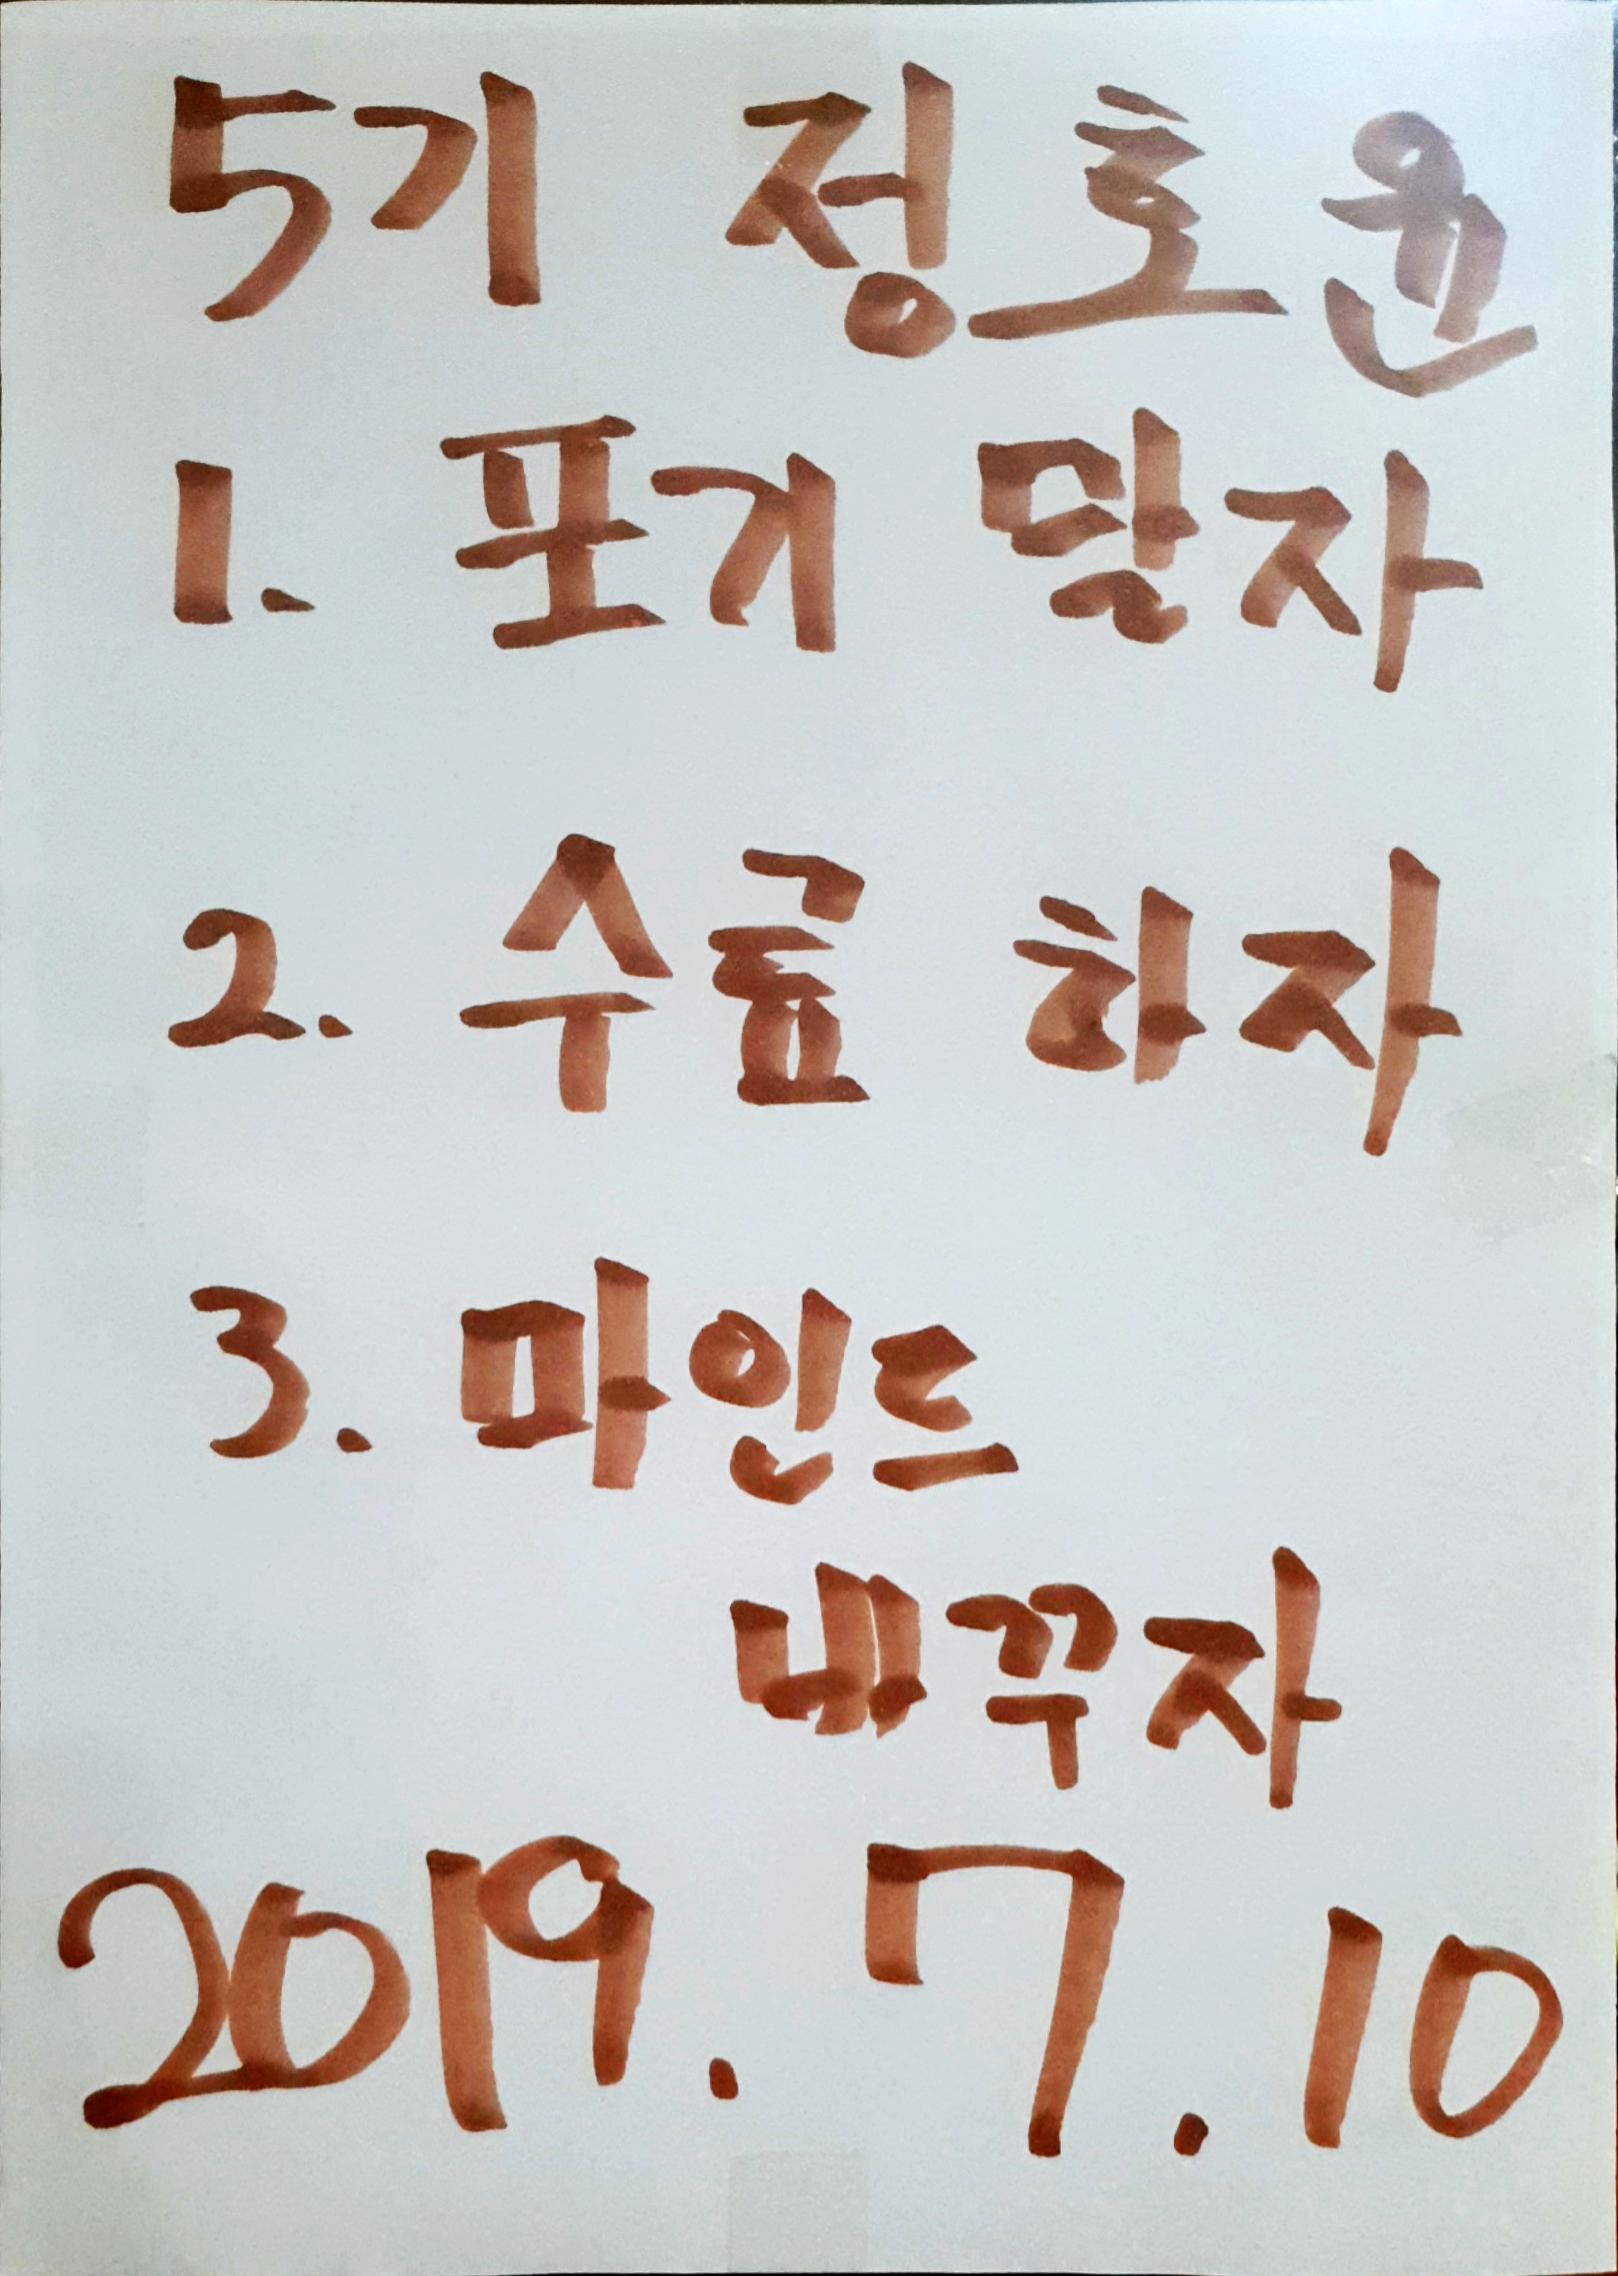 5기 정호윤
1. 포기 말자
2. 수료 하자
3. 마인드
바꾸자
2019. 7. 10